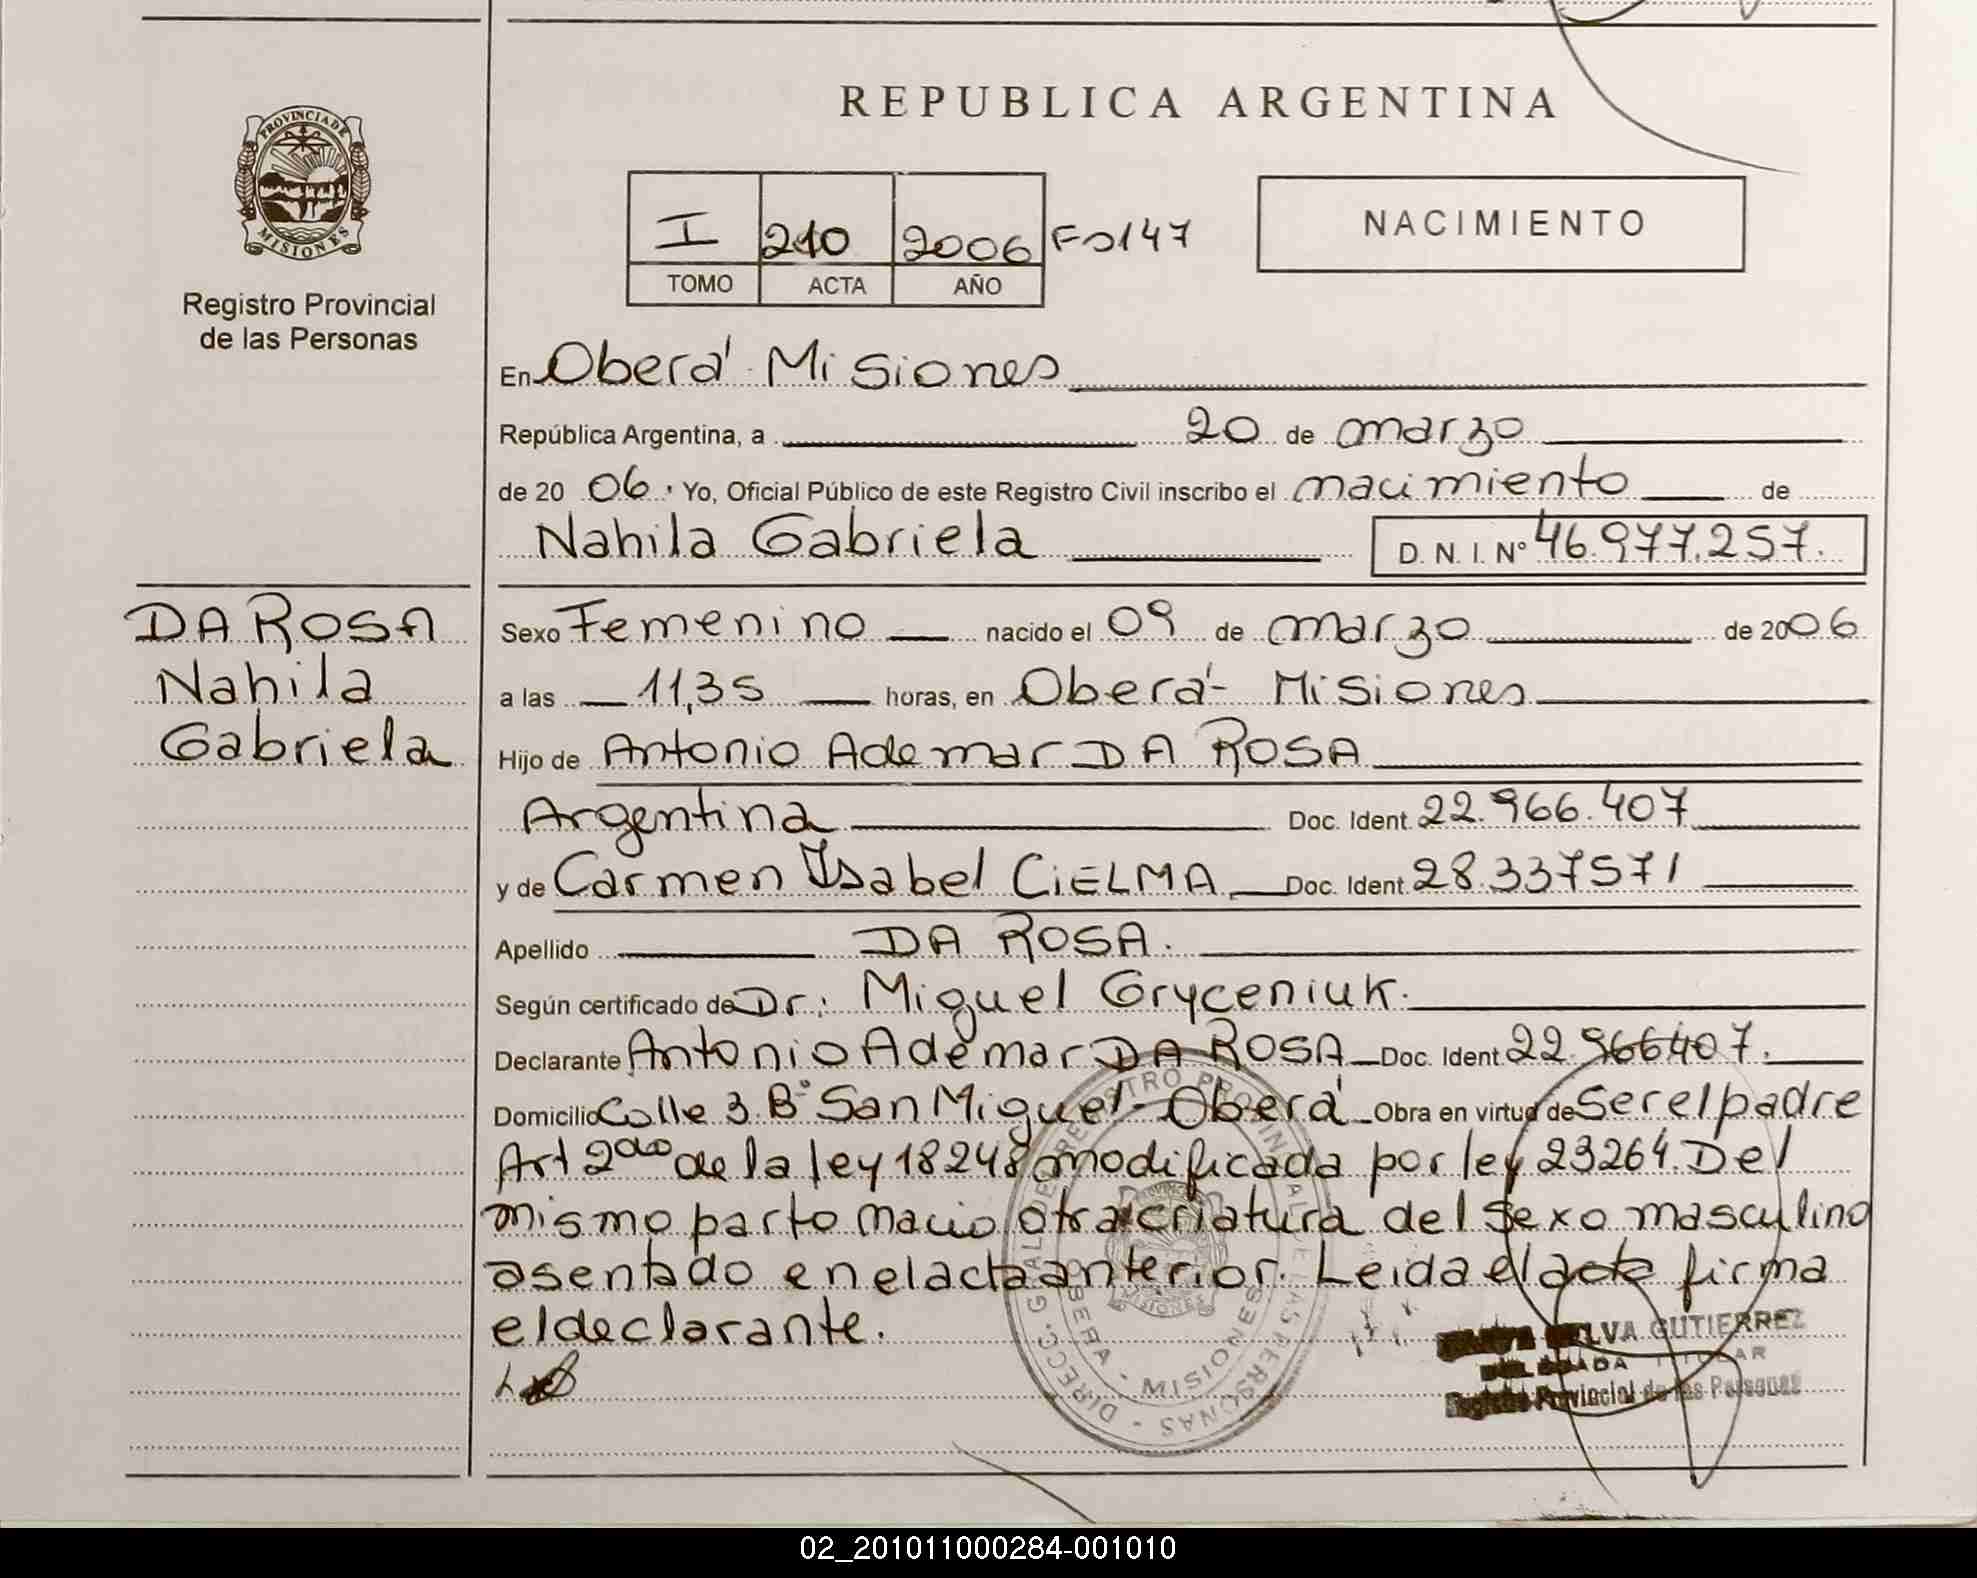 REPUBLICA ARGENTINA
PROVINCIA DE
MISIONES
Registro Provincial
de las Personas
I 210 2006 Fo 147
TOMO ACTA AÑO
NACIMIENTO
En Oberá Misiones
República Argentina, a 20 de marzo
de 20 06. Yo, Oficial Público de este Registro Civil inscribo el nacimiento de
Nahila Gabriela D. N. I. Nº 46.977.257.
DA ROSA
Nahila
Gabriela
Sexo Femenino nacido el 09 de marzo de 2006
a las 11,35 horas, en Oberá - Misiones
Hijo de Antonio Ademar DA ROSA
Argentina Doc. Ident. 22.966.407
y de Carmen Isabel CiELMA Doc. Ident. 28.337571
Apellido DA ROSA.
Según certificado de Dr: Miguel Gryceniuk.
Declarante Antonio Ademar DA ROSA Doc. Ident. 22.966407.
Domicilio Calle 3 Bº San Miguel - Oberá Obra en virtud de Ser el padre
Art 2do de la ley 18248 modificada por ley 23264. Del
mismo parto nacio otra criatura del sexo masculino
asentado en el acta anterior. Leida el acta firma
el declarante.
DIRECC. GRAL. DE REGISTRO PROVINCIAL DE LAS PERSONAS
OBERA - MISIONES
MISIONES
SELVA GUTIERREZ
TITULAR
Registro Provincial de las Personas
02_201011000284-001010